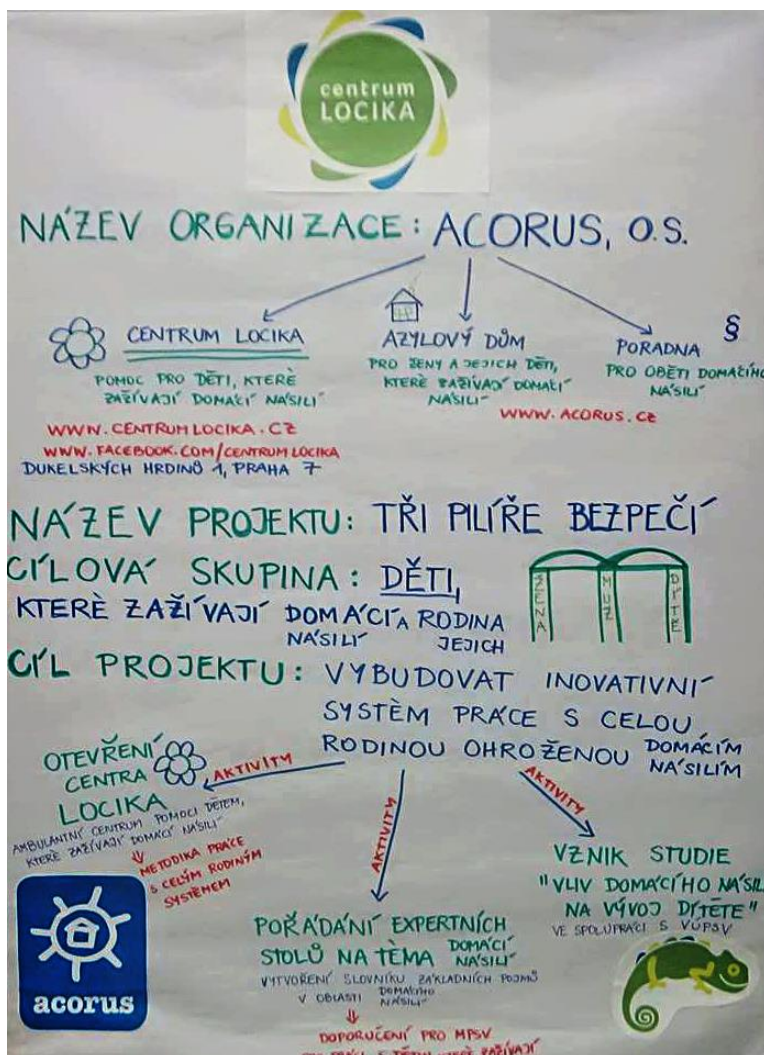 centrum
LOCIKA
NÁZEV ORGANIZACE: ACORUS, O.S.
CENTRUM LOCIKA
POMOC PRO DĚTI, KTERÉ
ZAŽÍVAJÍ DOMÁCÍ NÁSILÍ
WWW.CENTRUMLOCIKA.CZ
WWW.FACEBOOK.COM/CENTRUMLOCIKA
DUKELSKÝCH HRDINŮ 1, PRAHA 7
AZYLOVÝ DŮM
PRO ŽENY A JEJICH DĚTI,
KTERÉ ZAŽÍVAJÍ DOMÁCÍ
NÁSILÍ
WWW.ACORUS.CZ
§
PORADNA
PRO OBĚTI DOMÁCÍHO
NÁSILÍ
NÁZEV PROJEKTU: TŘI PILÍŘE BEZPEČÍ
CÍLOVÁ SKUPINA: DĚTI,
KTERÉ ZAŽÍVAJÍ DOMÁCÍ A RODINA
NÁSILÍ JEJICH
ŽENA
MUŽ
DÍTĚ
CÍL PROJEKTU: VYBUDOVAT INOVATIVNÍ
SYSTÉM PRÁCE S CELOU
RODINOU OHROŽENOU DOMÁCÍM
NÁSILÍM
AKTIVITY
OTEVŘENÍ
CENTRA
LOCIKA
AMBULANTNÍ CENTRUM POMOCI DĚTEM,
KTERÉ ZAŽÍVAJÍ DOMÁCÍ NÁSILÍ
METODIKA PRÁCE
S CELÝM RODINÝM
SYSTÉMEM
acorus
AKTIVITY
POŘÁDÁNÍ EXPERTNÍCH
STOLŮ NA TÉMA DOMÁCÍ
NÁSILÍ
VYTVOŘENÍ SLOVNÍKU ZÁKLADNÍCH POJMŮ
V OBLASTI DOMÁCÍHO
NÁSILÍ
DOPORUČENÍ PRO MPSV
DĚTMI KTERÉ ZAŽÍVAJÍ
AKTIVITY
VZNIK STUDIE
"VLIV DOMÁCÍHO NÁSIL
NA VÝVOJ DÍTĚTE"
VE SPOLUPRÁCI S VÚPSV